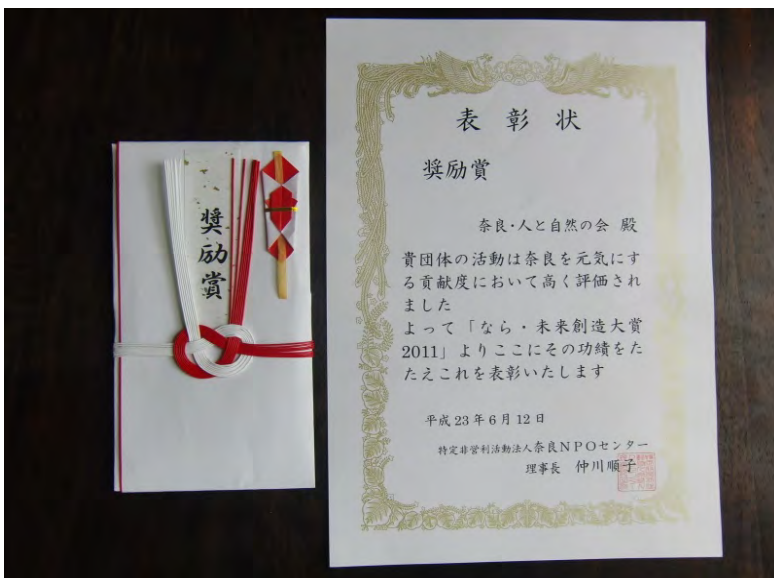 奨励賞
表彰状
奨励賞
奈良・人と自然の会 殿
貴団体の活動は奈良を元気にす
る貢献度において高く評価され
ました
よって「なら・未来創造大賞
2011」よりここにその功績をた
たえこれを表彰いたします
平成23年6月12日
特定非営利活動法人奈良NPOセンター
理事長 仲川順子